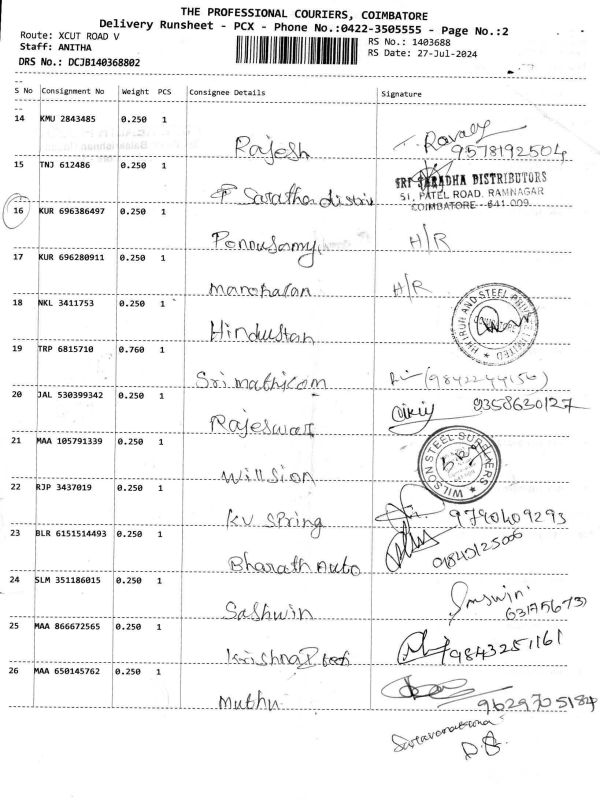 THE PROFESSIONAL COURIERS, COIMBATORE
Delivery Runsheet - PCX - Phone No.:0422-3505555 - Page No.:2
Route: XCUT ROAD V RS No.: 1403688
Staff: ANITHA RS Date: 27-Jul-2024
DRS No.: DCJB140368802
S No Consignment No Weight PCS Consignee Details Signature
14 KMU 2843485 0.250 1
Rajesh 9578192504
15 TNJ 612486 0.250 1
SRI SARADHA DISTRIBUTORS
51, PATEL ROAD, RAMNAGAR
COIMBATORE - 641 009
16 KUR 696386497 0.250 1
Ponnusamy H/R
17 KUR 696280911 0.250 1
Manoharan H/R
18 NKL 3411753 0.250 1
Hindustan
19 TRP 6815710 0.760 1
Srimathi com (9842244156)
20 JAL 530399342 0.250 1
Rajeswari 9358630127
21 MAA 105791339 0.250 1
Willsion WILSON STEEL SUPPLIERS
22 RJP 3437019 0.250 1
KV Spring 9790409293
23 BLR 6151514493 0.250 1
Bharath Auto
24 SLM 351186015 0.250 1
Sashwin
25 MAA 866672565 0.250 1
Krishna 9843251161
26 MAA 650145762 0.250 1
Muthu 9629705184